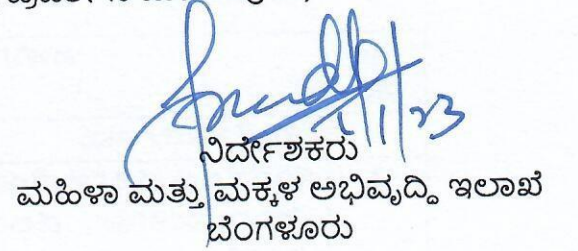 1/1/23
ನಿರ್ದೇಶಕರು
ಮಹಿಳಾ ಮತ್ತು ಮಕ್ಕಳ ಅಭಿವೃದ್ಧಿ ಇಲಾಖೆ
ಬೆಂಗಳೂರು